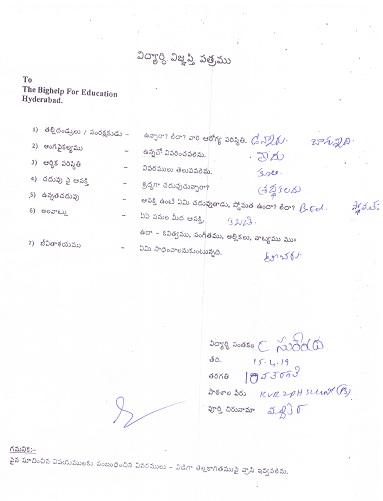 విద్యార్థి విజ్ఞప్తి పత్రము
To
The Bighelp For Education
Hyderabad.
1) తల్లిదండ్రులు / సంరక్షకుడు - ఉన్నారా? లేరా? వారి ఆరోగ్య పరిస్థితి. ఉన్నారు. బాగున్నది
2) అంగవైకల్యము - ఉన్నచో వివరించవలెను. లేదు
3) ఆర్థిక పరిస్థితి - వివరములు తెలుపవలెను. కూలి
4) చదువు పై ఆసక్తి - శ్రద్ధగా చదువుచున్నారా?
5) ఉన్నతచదువు - ఆసక్తి ఉంటే ఏమి చదువుతాడు, స్తోమత ఉందా? లేదా? B.ed.
6) అలవాట్లు - ఏఏ పనుల మీద ఆసక్తి.
ఉదా - కవిత్వము, సంగీతము, అల్లికలు, నాట్యము మొ||
7) జీవితాశయము - ఏమి సాధించాలనుకుంటున్నది.
విద్యార్థి సంతకం C
తేది. 15-4-19
తరగతి 10వ తరగతి
పాఠశాల పేరు
పూర్తి చిరునామా
గమనిక:-
పైన సూచించిన విషయములకు సంబంధించిన వివరములు - విడిగా తెల్లకాగితముపై వ్రాసి ఇవ్వవలెను.